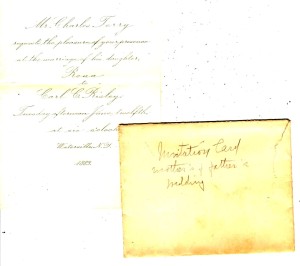 Mr. Charles Terry
requests the pleasure of your presence
at the marriage of his daughter,
Rena
to
Carl C. Risley,
Tuesday afternoon, June twelfth
at six o'clock
N.Y.
1888.
Invitation Card
mother's & father's
wedding